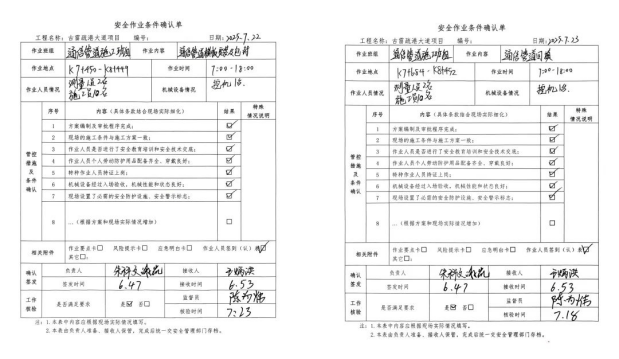 安全作业条件确认单
工程名称：古雷疏港大道项目 编号： 日期：2025.7.22
作业班组 作业内容
作业地点 作业时间 7:00-18:00
作业人员情况 测量员2名 机械设备情况 挖机1台
施工员10名
管控措施及条件确认
序号 内容（具体条款结合现场实际细化） 结果 特殊情况说明
1 方案编制及审批程序完成； ☑
2 现场的施工条件与施工方案一致； ☑
3 作业人员是否进行了安全教育培训和安全技术交底； ☑
4 作业人员个人劳动防护用品配备齐全、穿戴良好； ☑
5 特种作业人员持证上岗； ☑
6 机械设备经过入场验收，机械性能和状态良好； ☑
7 现场设置了必需的安全防护设施、安全警示标志； ☑
8 …（根据方案和现场实际情况增加） □
相关附件 作业要点卡□ 风险提示卡□ 应急明白卡□ 作业人员签到（认）表☑
其它□。
确认签发 负责人 接收人
签发时间 6.47 接收时间 6.53
工作核验 是否满足要求 是☑ 否□ 监督员
核验时间 7:23
注：1.本表中内容应根据现场实际情况填写。
2.本表由负责人准备、接收人保管，完成后统一交安全管理部门存档。
安全作业条件确认单
工程名称：古雷疏港大道项目 编号： 日期：2025.7.23
作业班组 作业内容
作业地点 作业时间 7:00-18:00
作业人员情况 测量员2名 机械设备情况 挖机1台
施工员10名
管控措施及条件确认
序号 内容（具体条款结合现场实际细化） 结果 特殊情况说明
1 方案编制及审批程序完成； ☑
2 现场的施工条件与施工方案一致； ☑
3 作业人员是否进行了安全教育培训和安全技术交底； ☑
4 作业人员个人劳动防护用品配备齐全、穿戴良好； ☑
5 特种作业人员持证上岗； ☑
6 机械设备经过入场验收，机械性能和状态良好； ☑
7 现场设置了必需的安全防护设施、安全警示标志； ☑
8 …（根据方案和现场实际情况增加） □
相关附件 作业要点卡□ 风险提示卡□ 应急明白卡□ 作业人员签到（认）表☑
其它□。
确认签发 负责人 接收人
签发时间 6.47 接收时间 6.53
工作核验 是否满足要求 是☑ 否□ 监督员
核验时间 7.18
注：1.本表中内容应根据现场实际情况填写。
2.本表由负责人准备、接收人保管，完成后统一交安全管理部门存档。